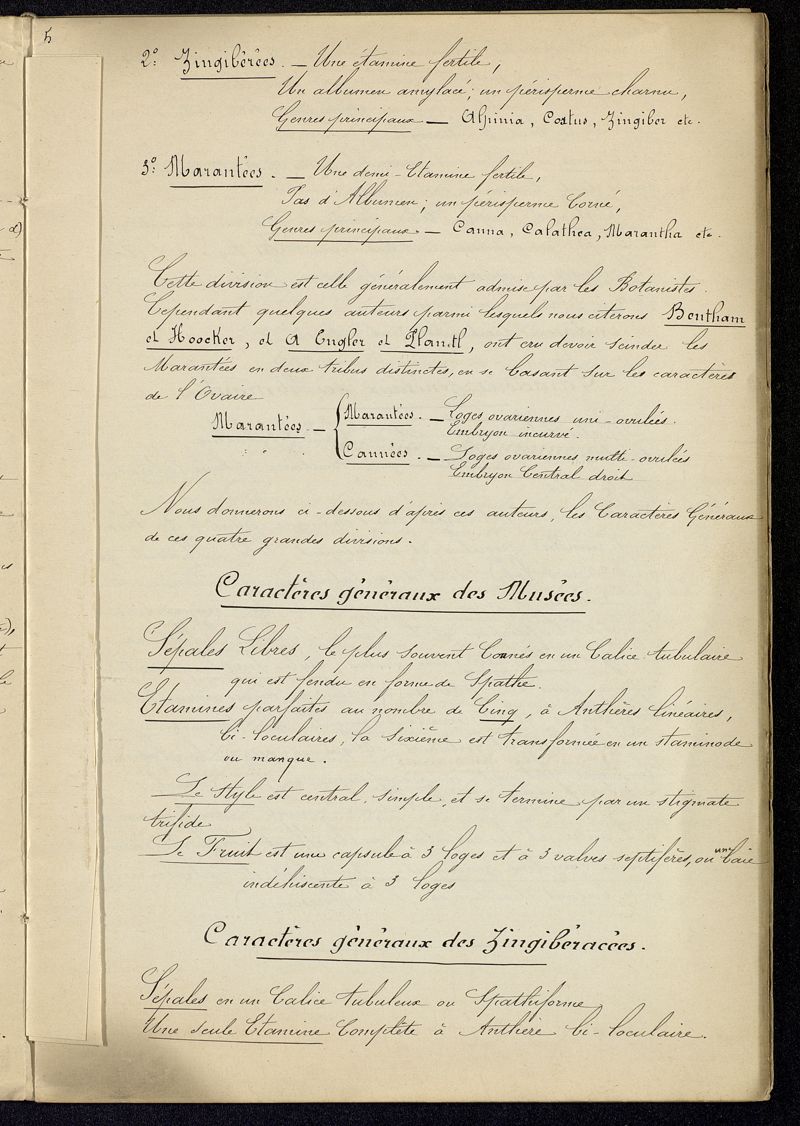 5
2º Zingibérées. — Une étamine fertile,
Un albumen amylacé; un périsperme charnu,
Genres principaux — Alpinia, Costus, Zingiber etc.
3º Marantées. — Une demi-Etamine fertile,
Pas d'Albumen; un périsperme Corné,
Genres principaux — Canna, Calathea, Marantha etc
Cette division est celle généralement admise par les Botanistes.
Cependant quelques auteurs parmi lesquels nous citerons Bentham
et Hoocker, et A Engler et Plantl, ont cru devoir scinder les
Marantées en deux tribus distinctes, en se basant sur les caractères
de l'Ovaire
Marantées. — { Marantées. — Loges ovariennes uni-ovulées.
Embryon incurvé.
Cannées. — Loges ovariennes multi-ovulées
Embryon Central droit
Nous donnerons ci-dessous d'après ces auteurs, les Caractères Généraux
de ces quatre grandes divisions.
Caractères généraux des Musées.
Sépales Libres, le plus souvent Connés en un Calice tubulaire
qui est fendu en forme de Spathe.
Etamines parfaites au nombre de Cinq, à Anthères linéaires,
bi-loculaires, la sixième est transformée en un staminode
ou manque.
Le Style est central, simple, et se termine par un stigmate
trifide
Le Fruit est une capsule à 3 loges et à 3 valves septifères, ou une baie
indéhiscente à 3 loges
Caractères généraux des Zingibéracées.
Sépales en un Calice tubuleux ou Spathiforme
Une seule Etamine Complète à Anthère bi-loculaire.